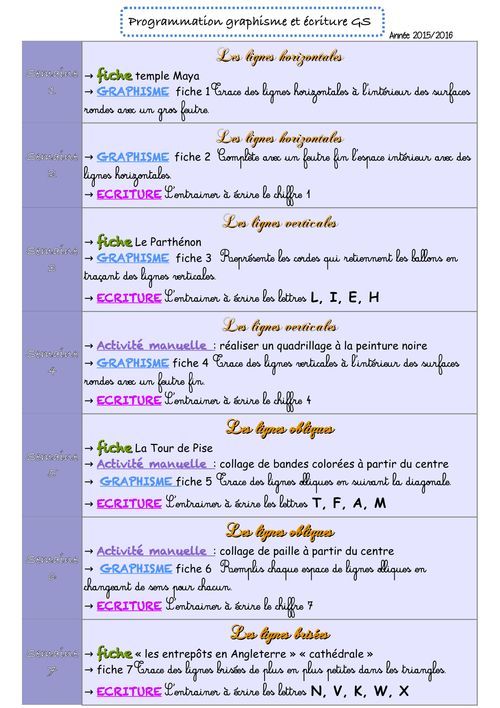 Programmation graphisme et écriture GS
Année 2015/2016
Semaine 1
Les lignes horizontales
→ fiche temple Maya
→ GRAPHISME fiche 1 Trace des lignes horizontales à l'intérieur des surfaces
rondes avec un gros feutre.
Semaine 2
Les lignes horizontales
→ GRAPHISME fiche 2 Complète avec un feutre fin l'espace intérieur avec des
lignes horizontales.
→ ECRITURE S'entrainer à écrire le chiffre 1
Semaine 3
Les lignes verticales
→ fiche Le Parthénon
→ GRAPHISME fiche 3 Représente les cordes qui retiennent les ballons en
traçant des lignes verticales.
→ ECRITURE S'entrainer à écrire les lettres L, I, E, H
Semaine 4
Les lignes verticales
→ Activité manuelle : réaliser un quadrillage à la peinture noire
→ GRAPHISME fiche 4 Trace des lignes verticales à l'intérieur des surfaces
rondes avec un feutre fin.
→ ECRITURE S'entrainer à écrire le chiffre 4
Semaine 5
Les lignes obliques
→ fiche La Tour de Pise
→ Activité manuelle : collage de bandes colorées à partir du centre
→ GRAPHISME fiche 5 Trace des lignes obliques en suivant la diagonale.
→ ECRITURE S'entrainer à écrire les lettres T, F, A, M
Semaine 6
Les lignes obliques
→ Activité manuelle : collage de paille à partir du centre
→ GRAPHISME fiche 6 Remplis chaque espace de lignes obliques en
changeant de sens pour chacun.
→ ECRITURE S'entrainer à écrire le chiffre 7
Semaine 7
Les lignes brisées
→ fiche « les entrepôts en Angleterre » « cathédrale »
→ fiche 7 Trace des lignes brisées de plus en plus petites dans les triangles.
→ ECRITURE S'entrainer à écrire les lettres N, V, K, W, X